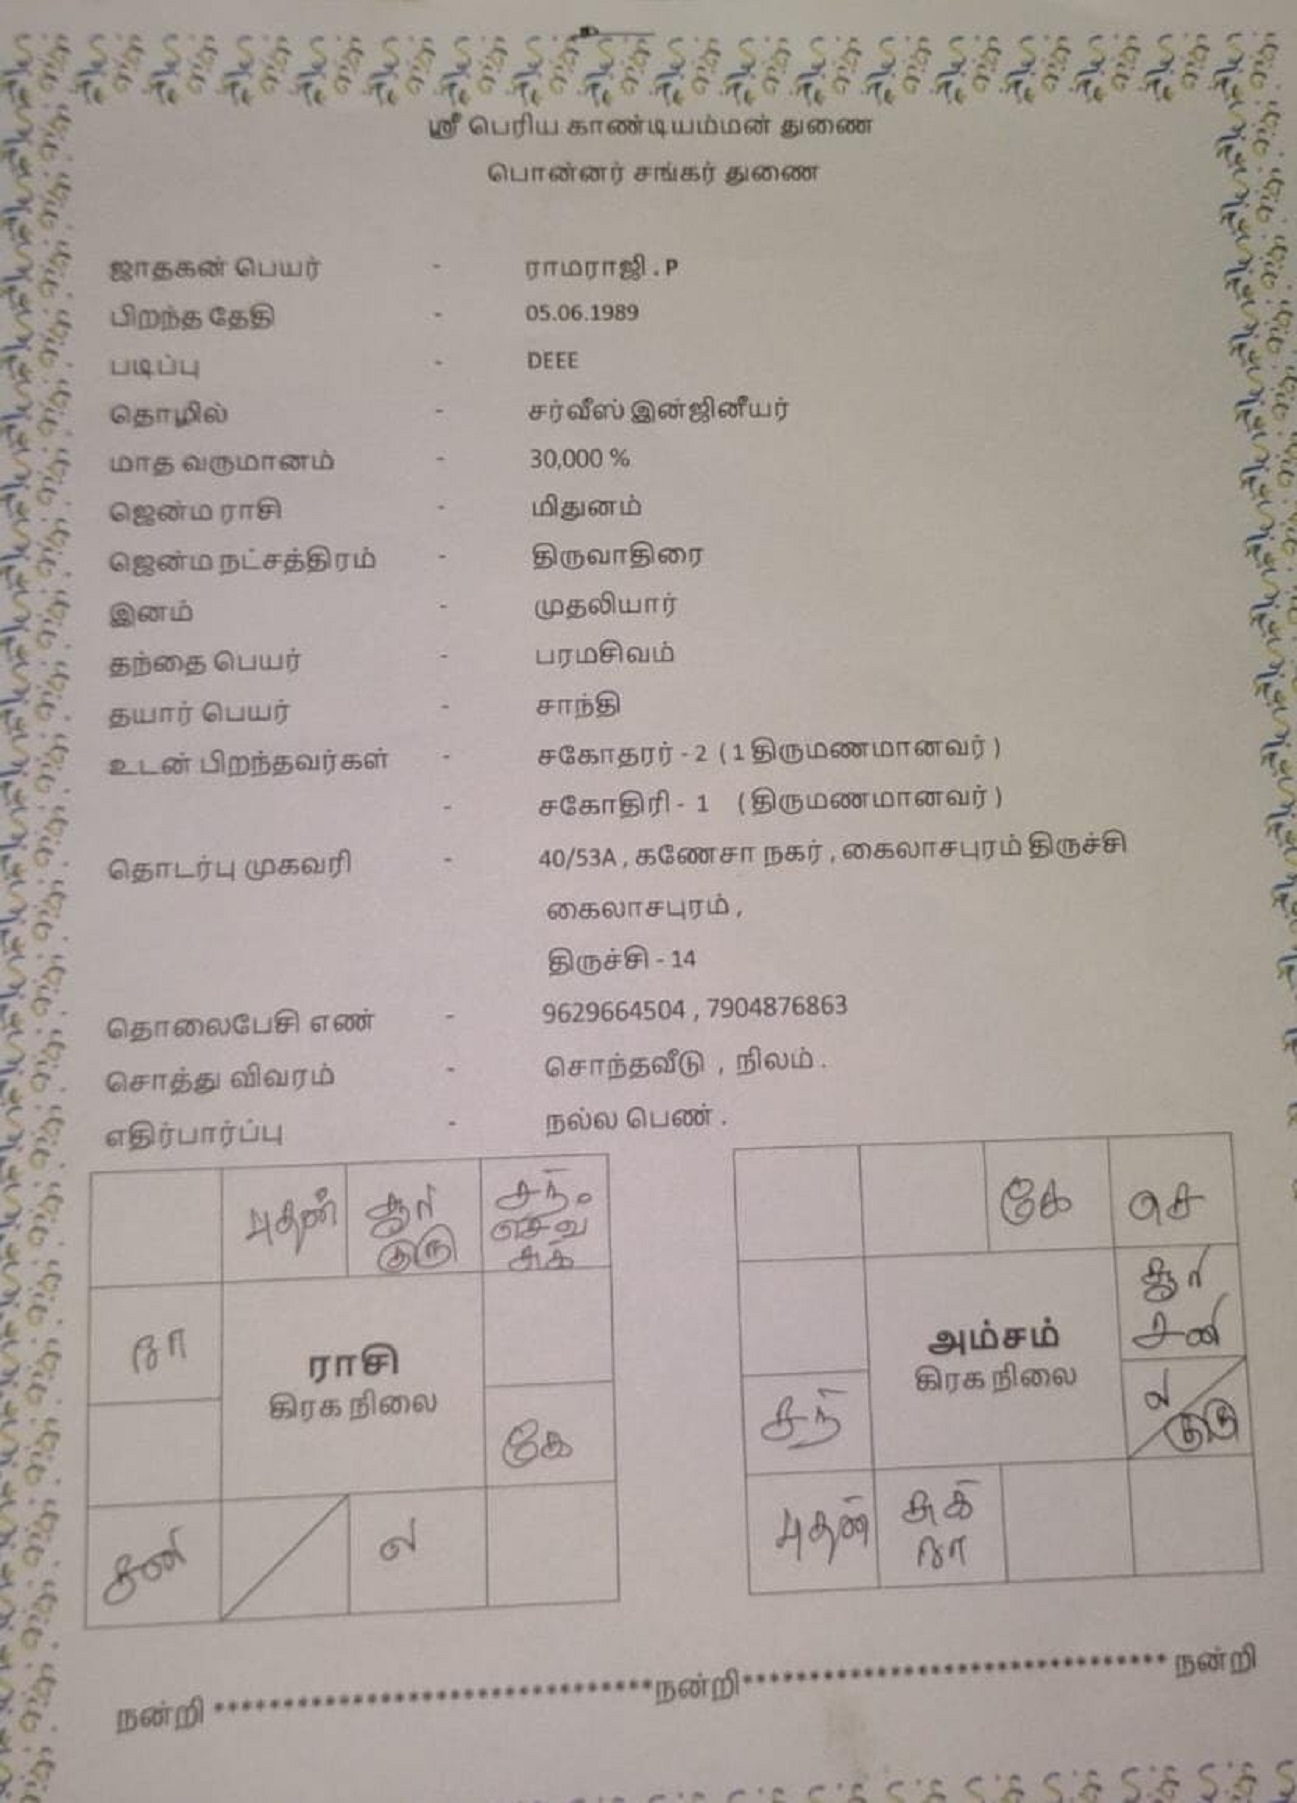 ஸ்ரீ பெரிய காண்டியம்மன் துணை
பொன்னர் சங்கர் துணை
ஜாதகன் பெயர் - ராமராஜி . P
பிறந்த தேதி - 05.06.1989
படிப்பு - DEEE
தொழில் - சர்வீஸ் இன்ஜினீயர்
மாத வருமானம் - 30,000 %
ஜென்ம ராசி - மிதுனம்
ஜென்ம நட்சத்திரம் - திருவாதிரை
இனம் - முதலியார்
தந்தை பெயர் - பரமசிவம்
தயார் பெயர் - சாந்தி
உடன் பிறந்தவர்கள் - சகோதரர் - 2 ( 1 திருமணமானவர் )
- சகோதிரி - 1 ( திருமணமானவர் )
தொடர்பு முகவரி - 40/53A , கணேசா நகர் , கைலாசபுரம் திருச்சி
கைலாசபுரம் ,
திருச்சி - 14
தொலைபேசி எண் - 9629664504 , 7904876863
சொத்து விவரம் - சொந்தவீடு , நிலம் .
எதிர்பார்ப்பு - நல்ல பெண் .
புதன் சூரி சந்.
குரு செவ
சுக்
ரா
ராசி
கிரக நிலை
கே
சனி
ல
கே செ
சூரி
சனி
அம்சம்
கிரக நிலை
ல
குரு
சந்
புதன் சுக்
ரா
நன்றி ********************************நன்றி******************************** நன்றி